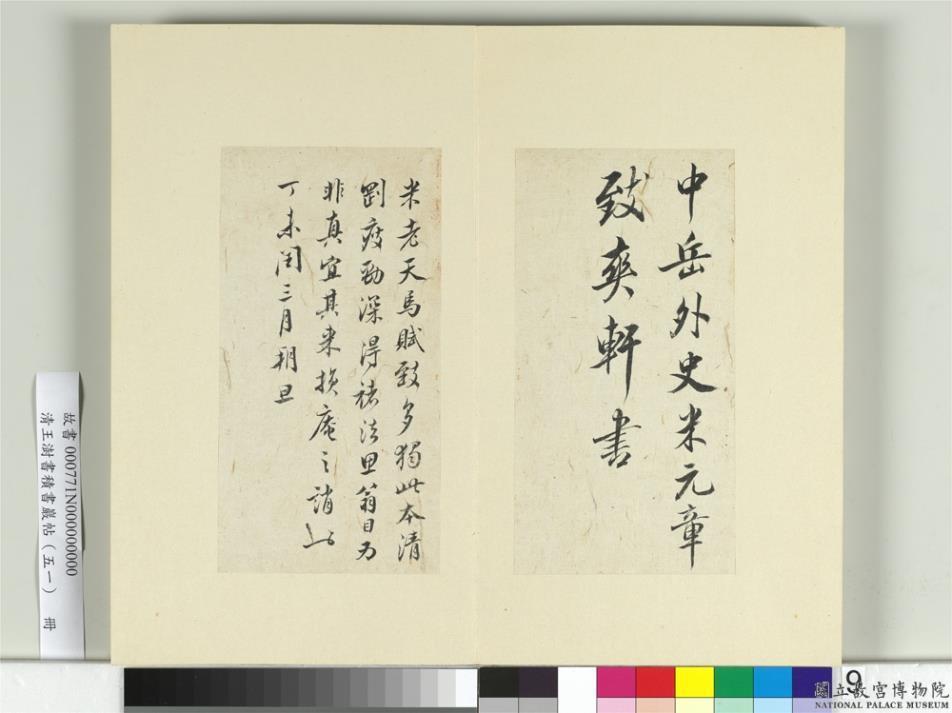 中岳外史米元章
致爽軒書
米老天馬賦致多獨此本清
剛瘦勁深得褚法思翁目为
非真宜其来損庵之誚也
丁未閏三月朔旦
故書 000771N000000000
清王澍書積書巖帖（五一） 冊
9
國立故宮博物院
NATIONAL PALACE MUSEUM